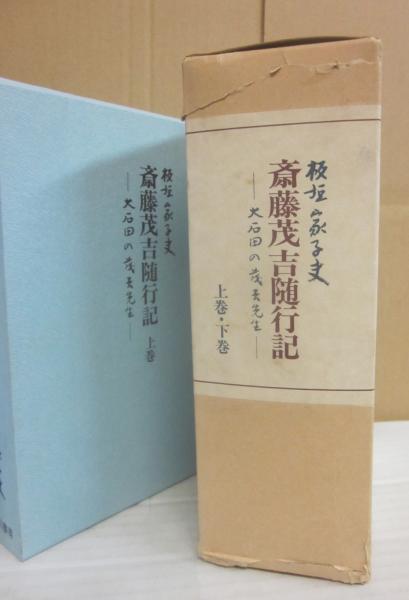 板垣家子夫
斎藤茂吉随行記
―大石田の茂吉先生―
上巻・下巻
板垣家子夫
斎藤茂吉随行記 上巻
―大石田の茂吉先生―